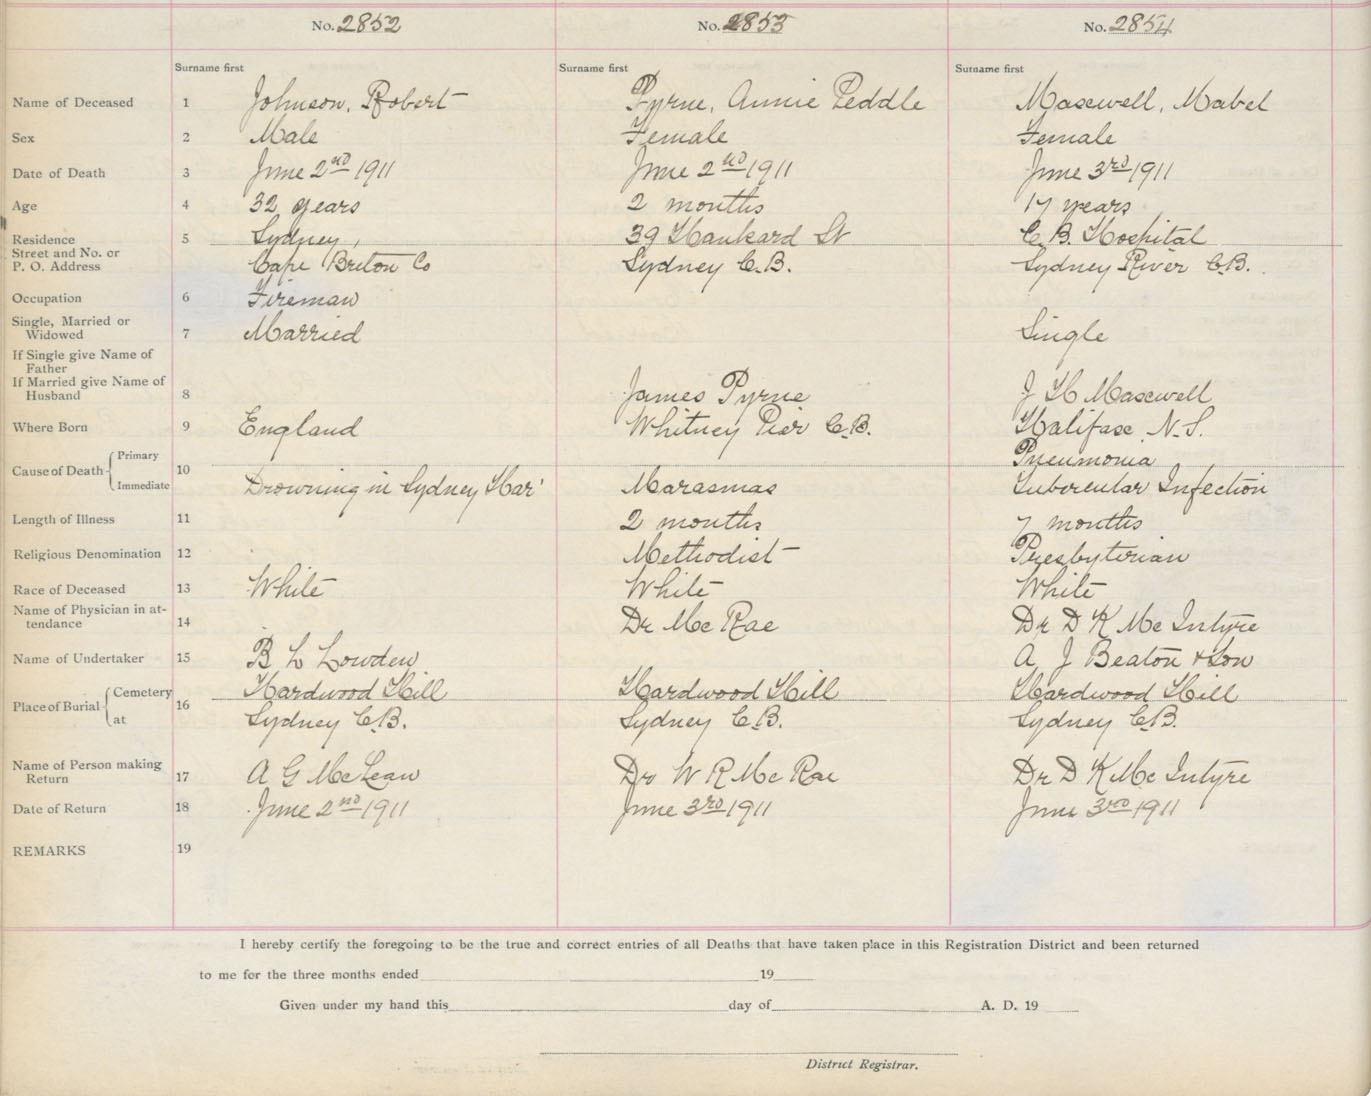 No. 2852 No. 2853 No. 2854
Surname first Surname first Surname first
Name of Deceased 1 Johnson, Robert Pyrne, Annie Peddle Maxwell, Mabel
Sex 2 Male Female Female
Date of Death 3 June 2nd 1911 June 2nd 1911 June 3rd 1911
Age 4 32 years 2 months 17 years
Residence 5 Sydney, 39 Hankard St C. B. Hospital
Street and No. or
P. O. Address Cape Breton Co Sydney C.B. Sydney River C.B.
Occupation 6 Fireman
Single, Married or
Widowed 7 Married Single
If Single give Name of
Father
If Married give Name of
Husband 8 James Pyrne J H Maxwell
Where Born 9 England Whitney Pier C.B. Halifax N.S.
Cause of Death Primary 10 Pneumonia
Immediate Drowning in Sydney Har' Marasmas Tubercular Infection
Length of Illness 11 2 months 7 months
Religious Denomination 12 Methodist Presbyterian
Race of Deceased 13 White White White
Name of Physician in at-
tendance 14 Dr Mc Rae Dr D K Mc Intyre
Name of Undertaker 15 B L Lowden A J Beaton & Son
Place of Burial Cemetery 16 Hardwood Hill Hardwood Hill Hardwood Hill
at Sydney C.B. Sydney C.B. Sydney C.B.
Name of Person making
Return 17 A G McLean Dr W R Mc Rae Dr D K Mc Intyre
Date of Return 18 June 2nd 1911 June 3rd 1911 June 3rd 1911
REMARKS 19
I hereby certify the foregoing to be the true and correct entries of all Deaths that have taken place in this Registration District and been returned
to me for the three months ended 19
Given under my hand this day of A. D. 19
District Registrar.